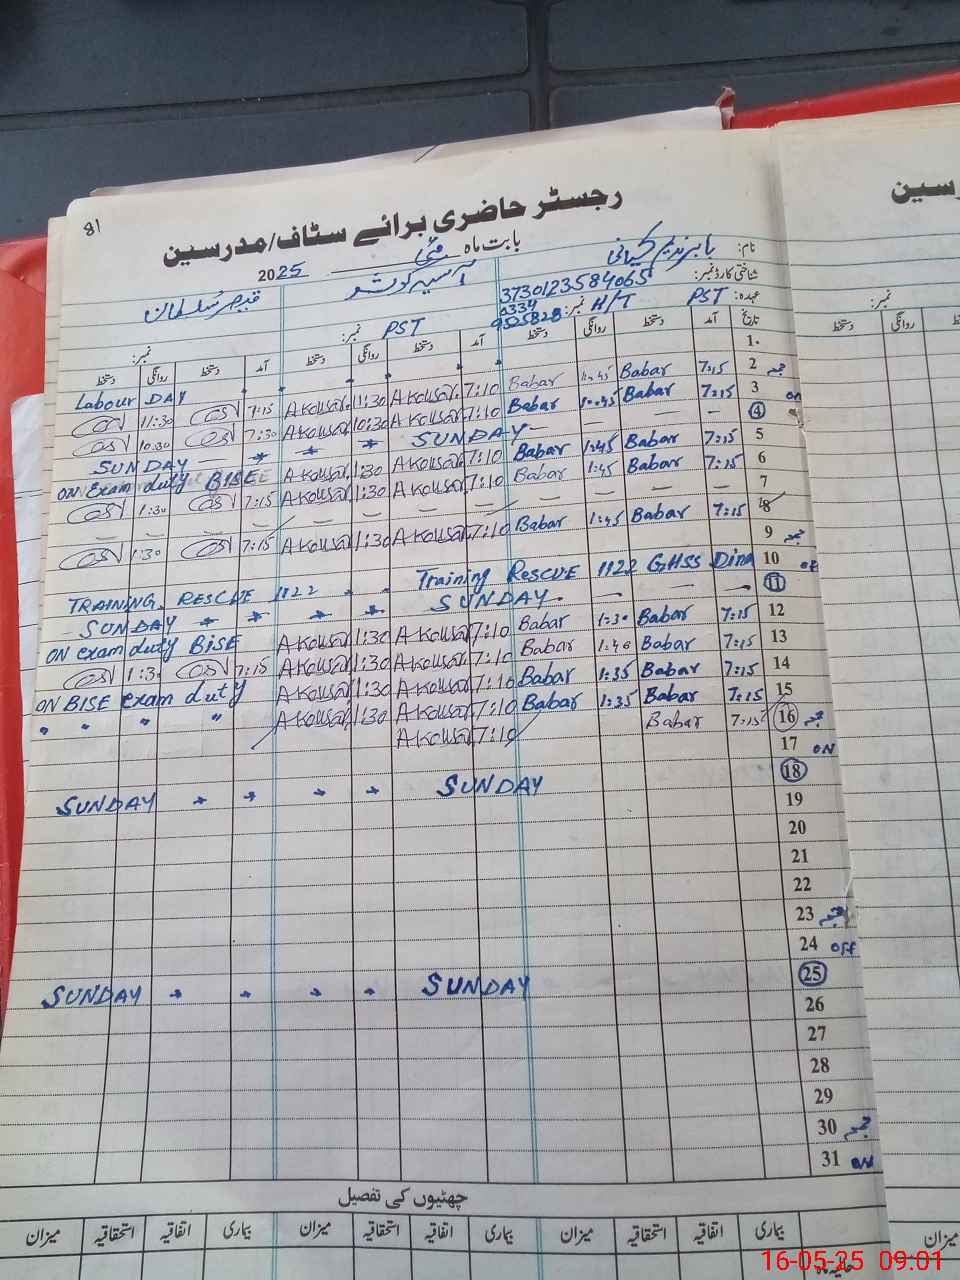 81
رجسٹر حاضری برائے سٹاف/مدرسین
بابت ماہ مئی 2025
نام: بابر ندیم کیانی آسیہ کوثر قیصر سلطان
شناختی کارڈ نمبر: 3730123584065
عہدہ: PST H/T نمبر: 0334 9525828 PST نمبر: نمبر:
تاریخ آمد دستخط روانگی دستخط آمد دستخط روانگی دستخط آمد دستخط روانگی دستخط
1. Labour DAY
2 جمعہ 7:15 Babar 11:45 Babar 7:10 A Kousar 11:30 A Kousar 7:15 11:30
3 ON 7:15 Babar 10:45 Babar 7:10 A Kousar 10:30 A Kousar 7:30 10:30
4 SUNDAY SUNDAY
5 7:15 Babar 1:45 Babar 7:10 A Kousar 1:30 A Kousar ON Exam duty BISE
6 7:15 Babar 1:45 Babar 7:10 A Kousar 1:30 A Kousar 7:15 1:30
7
8 7:15 Babar 1:45 Babar 7:10 A Kousar 1:30 A Kousar 7:15 1:30
9 جمعہ
10 OFF Training RESCUE 1122 GHSS Dina TRAINING RESCUE 1122
11 SUNDAY SUNDAY
12 7:15 Babar 1:30 Babar 7:10 A Kousar 1:30 A Kousar ON exam duty BISE
13 7:15 Babar 1:40 Babar 7:10 A Kousar 1:30 A Kousar 7:15 1:30
14 7:15 Babar 1:35 Babar 7:10 A Kousar 1:30 A Kousar ON BISE exam duty
15 7:15 Babar 1:35 Babar 7:10 A Kousar 1:30 A Kousar " " " "
16 جمعہ 7:15 Babar 7:10 A Kousar
17 ON
18 SUNDAY SUNDAY
19
20
21
22
23 جمعہ
24 OFF
25 SUNDAY SUNDAY
26
27
28
29
30 جمعہ
31 ON
چھٹیوں کی تفصیل
بیماری اتفاقیہ استحقاقیہ میزان بیماری اتفاقیہ استحقاقیہ میزان بیماری اتفاقیہ استحقاقیہ میزان
نمبر:
دستخط روانگی دستخط
میزان
16-05-25 09:01